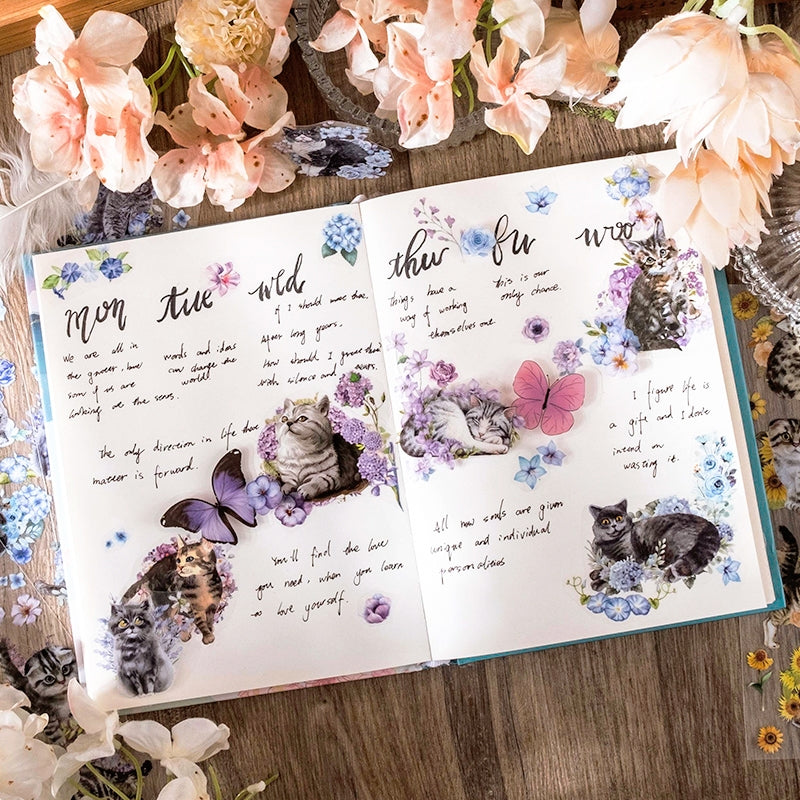 mon tue wed
We are all in
the gutter, but
som f us are
looking at the stars.
words and ideas
can change the
world!
if I should meet thee,
After long years,
How should I greet thee
With silence and tears.
the only direction in life that
matter is forward.
You'll find the love
you need, when you learn
to love yourself.
thur fri woo
Things have a
way of working
themselves one.
this is our
only chance.
I figure life is
a gift and I don't
intend on
wasting it.
All new souls are given
unique and individual
personalities